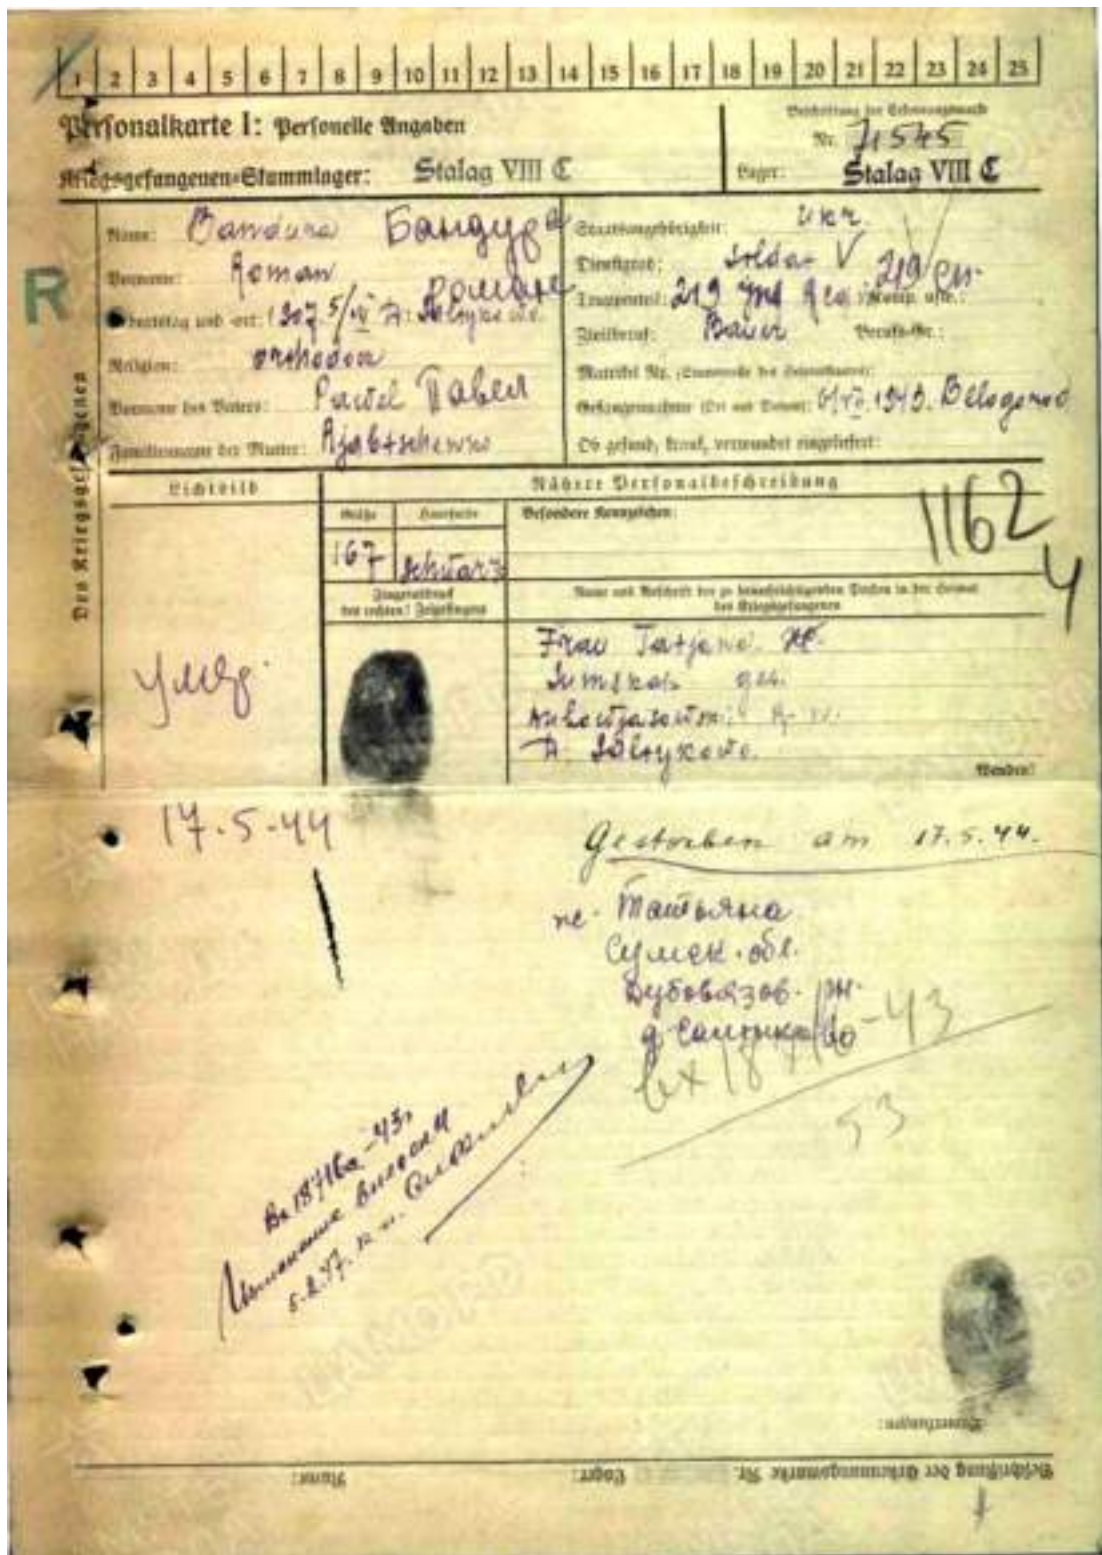 1 2 3 4 5 6 7 8 9 10 11 12 13 14 15 16 17 18 19 20 21 22 23 24 25
Personalkarte I: Personelle Angaben
Beschriftung der Erkennungsmarke
Nr. 71545
Kriegsgefangenen-Stammlager: Stalag VIII C
Lager: Stalag VIII C
Des Kriegsgefangenen
R
Name: Bandura Бандура
Vorname: Roman Роман
Geburtstag und -ort: 1907. 5/
Religion: orthodox
Vorname des Vaters: Pawel Павел
Familienname der Mutter: Rjabtschenko
Staatsangehörigkeit: Ukr.
Dienstgrad: Soldat V
Truppenteil: 219 Inf Regi Komp. usw.: 219 сп.
Zivilberuf: Bauer Berufs-Gr.:
Matrikel Nr. (Stammrolle des Heimatstaates):
Gefangennahme (Ort und Datum): 1943. Belogorod
Ob gesund, krank, verwundet eingeliefert:
Lichtbild
Nähere Personalbeschreibung
Größe Haarfarbe Besondere Kennzeichen:
167 schwarz
1162
4
Fingerabdruck
des rechten! Zeigefingers
Name und Anschrift der zu benachrichtigenden Person in der Heimat
des Kriegsgefangenen
умер
Frau Tatjana
Sumskaja
Wenden!
17.5.44
Gestorben am 17.5.44.
же. Татьяна
Сумск. обл.
Дубовязов. рн.
вх 18716-43
53
Вх 18716с-43г
Beschriftung der Erkennungsmarke Nr. Lager: Name:
Bemerkungen: